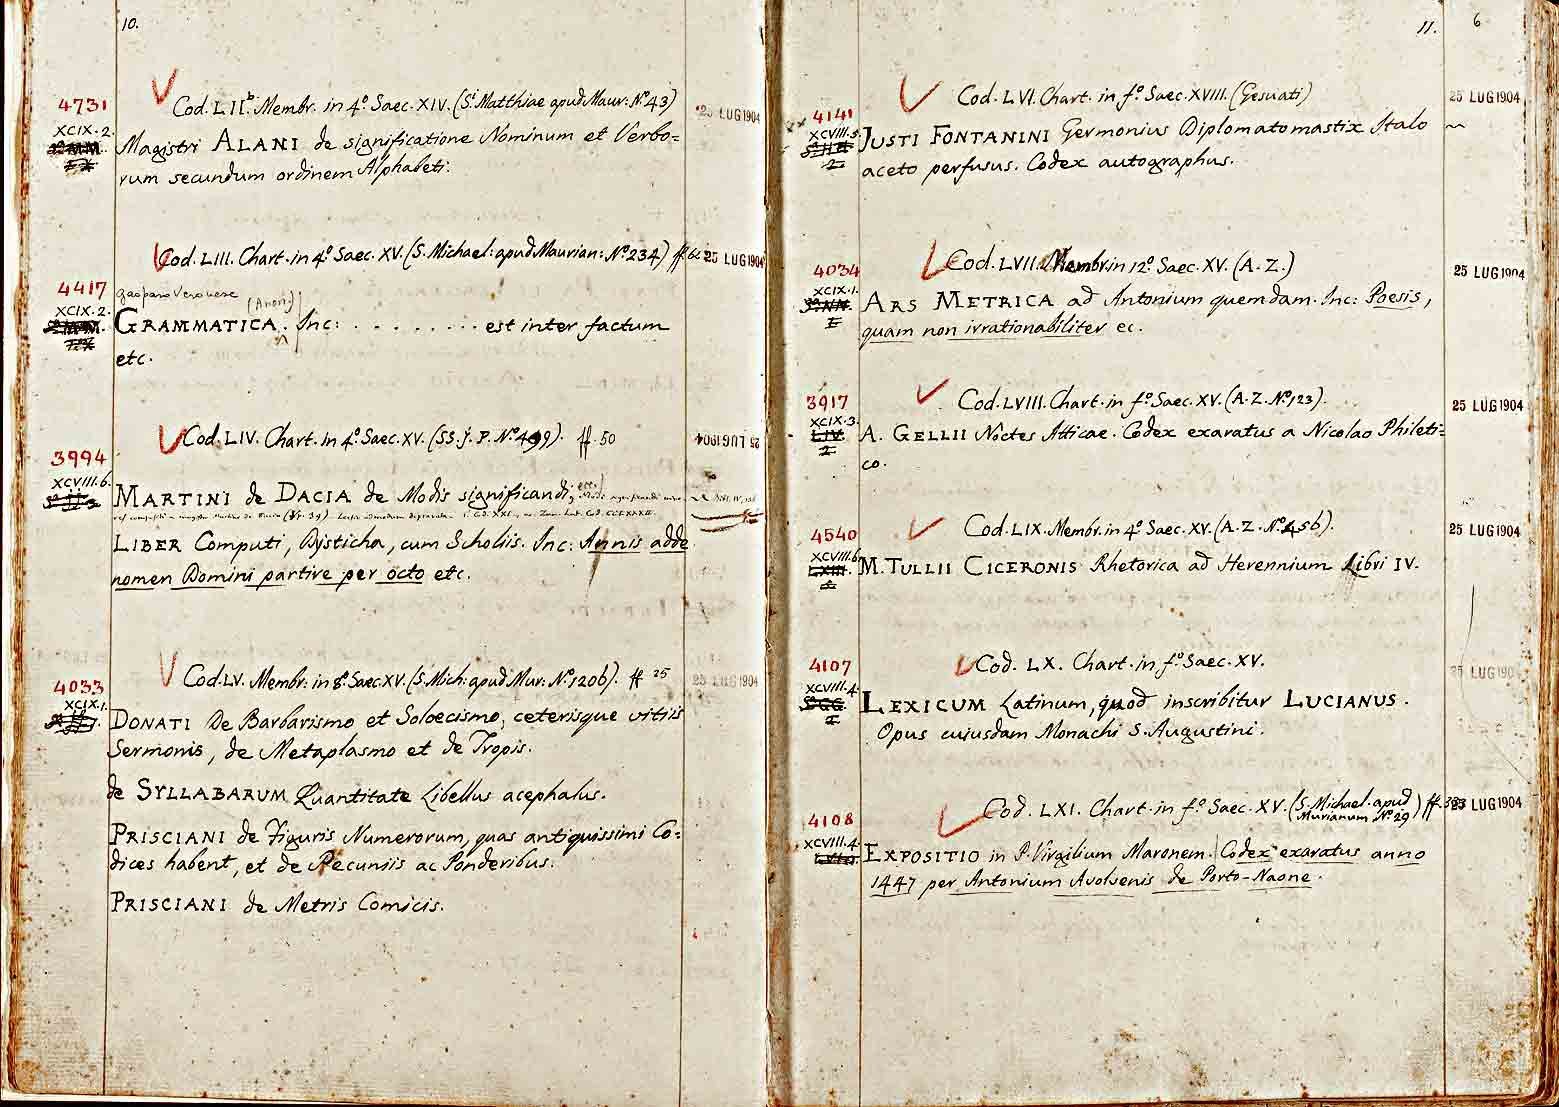 10.
4731
XCIX. 2.
Cod. LII.b Membr. in 4.º Saec. XIV. (S.i Matthiae apud Maur: Nº 43)
25 LUG 1904
Magistri ALANI de significatione Nominum et Verbo=
rum secundum ordinem Alphabeti.
Cod. LIII. Chart. in 4.º Saec. XV. (S. Michael: apud Maurian: Nº 234) ff.
25 LUG 1904
4417
XCIX. 2.
gasparo Veronese
(Anon.)
GRAMMATICA. Inc: . . . . . . . . est inter factum
etc.
Cod. LIV. Chart. in 4.º Saec. XV. (SS. J. P. Nº 499). ff. 50
25 LUG 1904
3994
XCVIII. 6.
MARTINI de DACIA de Modis significandi;
LIBER Computi, Dysticha, cum Scholiis. Inc: Annis adde
nomen Domini partire per octo etc.
Cod. LV. Membr. in 8.º Saec. XV. (S. Mich: apud Mur: Nº 1206). ff 25
25 LUG 1904
4033
XCIX. 1.
DONATI De Barbarismo et Soloecismo, ceterisque vitiis
Sermonis, de Metaplasmo et de Tropis.
de SYLLABARUM Quantitate Libellus acephalus.
PRISCIANI de Figuris Numerorum, quas antiquissimi Co=
dices habent, et de Pecuniis ac Ponderibus.
PRISCIANI de Metris Comicis.
11.
6
Cod. LVI. Chart. in f.º Saec. XVIII. (Gesuati)
25 LUG 1904
4141
XCVIII. 5.
2
JUSTI FONTANINI Germonius Diplomatomastix Italo
aceto perfusus. Codex autographus.
Cod. LVII. Membr. in 12.º Saec. XV. (A. Z.)
25 LUG 1904
4034
XCIX. 1.
ARS METRICA ad Antonium quemdam. Inc: Poesis,
quam non irrationabiliter ec.
3917
XCIX. 3.
Cod. LVIII. Chart. in f.º Saec. XV. (A. Z. Nº 123).
25 LUG 1904
LIV.
2
A. GELLII Noctes Atticae. Codex exaratus a Nicolao Phileti=
co.
4540
XCVIII. 6.
Cod. LIX. Membr. in 4.º Saec. XV. (A. Z. Nº 456).
25 LUG 1904
M. TULLII CICERONIS Rhetorica ad Herennium Libri IV.
4107
XCVIII. 4.
Cod. LX. Chart. in f.º Saec. XV.
25 LUG 190
LEXICUM Latinum, quod inscribitur LUCIANUS.
Opus cuiusdam Monachi S. Augustini.
4108
XCVIII. 4.
Cod. LXI. Chart. in f.º Saec. XV. (S. Michael. apud
Murianum Nº 29) ff.
25 LUG 1904
EXPOSITIO in P. Virgilium Maronem. Codex exaratus anno
1447 per Antonium Avolvenis de Porto-Naone.